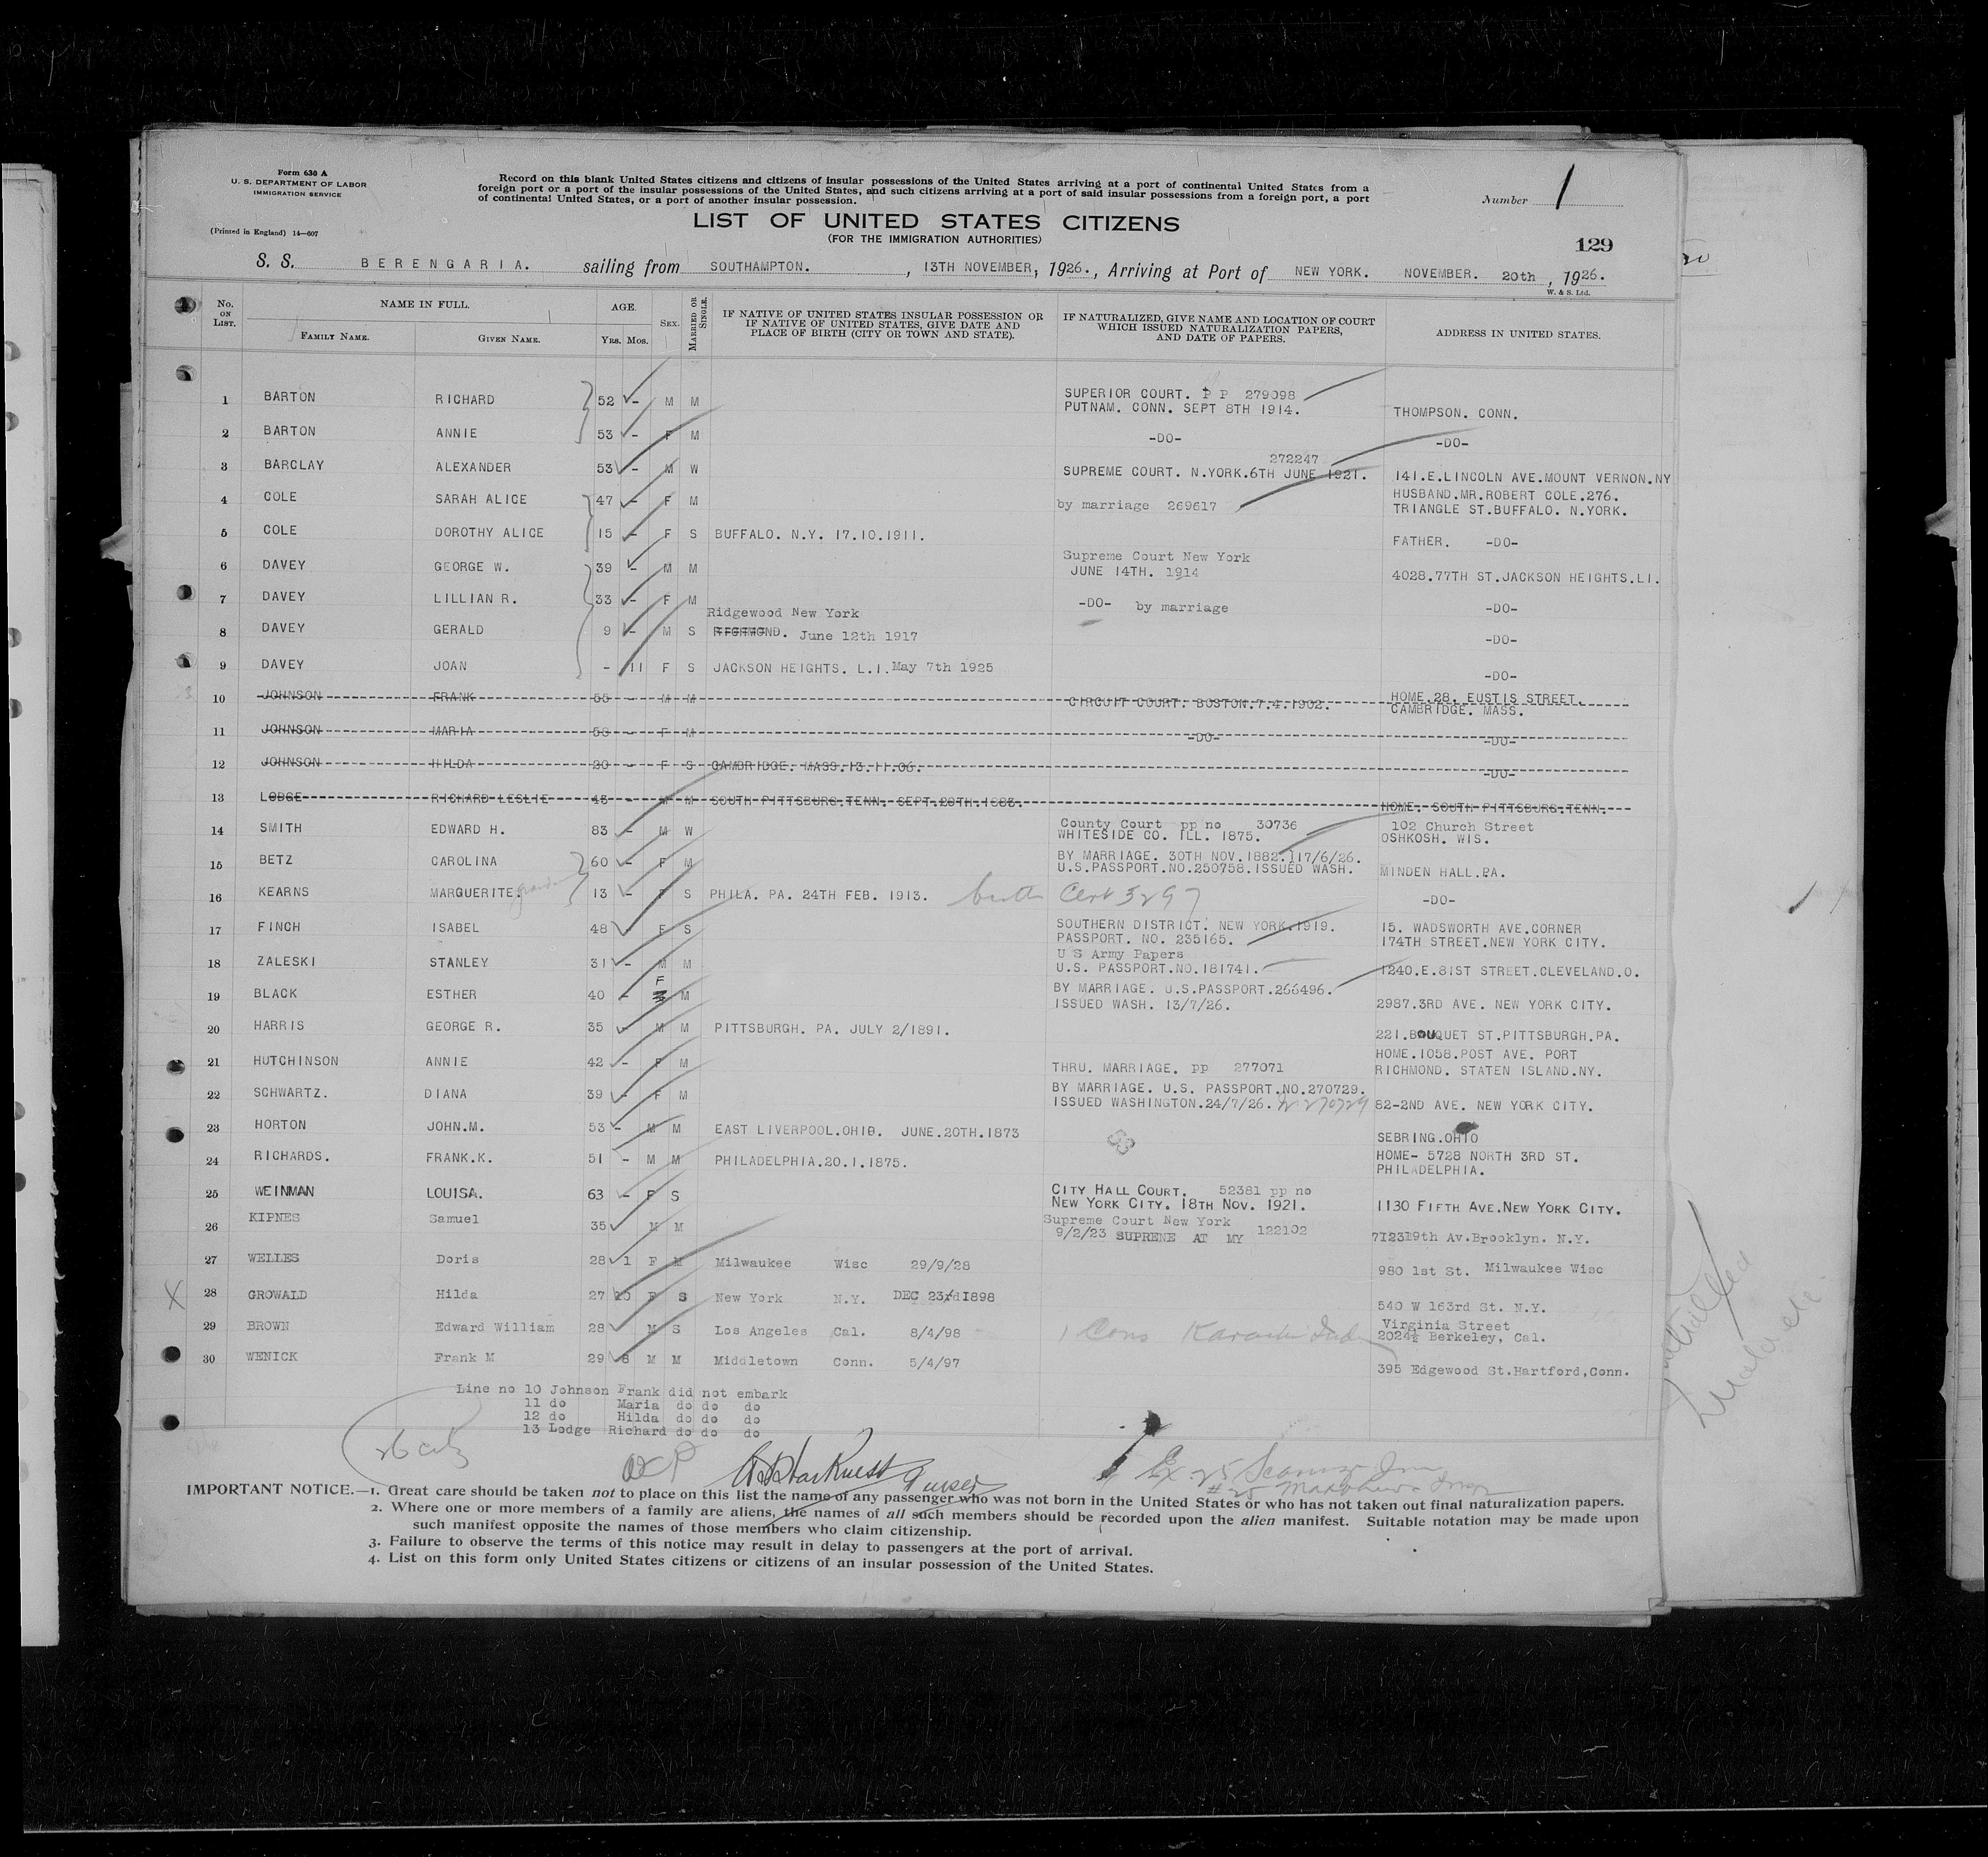 Form 630 A
U. S. DEPARTMENT OF LABOR
IMMIGRATION SERVICE
(Printed in England) 14—607
Record on this blank United States citizens and citizens of insular possessions of the United States arriving at a port of continental United States from a
foreign port or a port of the insular possessions of the United States, and such citizens arriving at a port of said insular possessions from a foreign port, a port
of continental United States, or a port of another insular possession.
Number 1
LIST OF UNITED STATES CITIZENS
(FOR THE IMMIGRATION AUTHORITIES)
129
S. S. BERENGARIA. sailing from SOUTHAMPTON. , 13TH NOVEMBER, 1926., Arriving at Port of NEW YORK. NOVEMBER. 20th , 1926.
W. & S. Ltd.
No. ON LIST. NAME IN FULL. AGE. SEX. MARRIED OR SINGLE. IF NATIVE OF UNITED STATES INSULAR POSSESSION OR IF NATIVE OF UNITED STATES, GIVE DATE AND PLACE OF BIRTH (CITY OR TOWN AND STATE). IF NATURALIZED, GIVE NAME AND LOCATION OF COURT WHICH ISSUED NATURALIZATION PAPERS, AND DATE OF PAPERS. ADDRESS IN UNITED STATES.
FAMILY NAME. GIVEN NAME. YRS. MOS.
1 BARTON RICHARD 52 - M M SUPERIOR COURT. P P 279098
PUTNAM. CONN. SEPT 8TH 1914. THOMPSON. CONN.
2 BARTON ANNIE 53 - F M -DO- -DO-
3 BARCLAY ALEXANDER 53 - M W 272247
SUPREME COURT. N.YORK.6TH JUNE 1921. 141.E.LINCOLN AVE.MOUNT VERNON.NY
4 COLE SARAH ALICE 47 - F M by marriage 269617 HUSBAND.MR.ROBERT COLE.276.
TRIANGLE ST.BUFFALO. N.YORK.
5 COLE DOROTHY ALICE 15 - F S BUFFALO. N.Y. 17.10.1911. FATHER. -DO-
6 DAVEY GEORGE W. 39 - M M Supreme Court New York
JUNE 14TH. 1914 4028.77TH ST.JACKSON HEIGHTS.LI.
7 DAVEY LILLIAN R. 33 - F M -DO- by marriage -DO-
Ridgewood New York
8 DAVEY GERALD 9 - M S RICHMOND. June 12th 1917 -DO-
9 DAVEY JOAN - 11 F S JACKSON HEIGHTS. L.I. May 7th 1925 -DO-
10 JOHNSON FRANK 55 - M M CIRCUIT COURT. BOSTON.7.4.1902. HOME.28. EUSTIS STREET.
CAMBRIDGE. MASS.
11 JOHNSON MARIA 56 - F M -DO- -DO-
12 JOHNSON HILDA 20 - F S CAMBRIDGE. MASS.13.11.06. -DO-
13 LODGE RICHARD LESLIE 43 - M M SOUTH PITTSBURG.TENN. SEPT.20TH.1883. HOME. SOUTH PITTSBURG.TENN.
14 SMITH EDWARD H. 83 - M W County Court pp no 30736 102 Church Street
WHITESIDE CO. ILL. 1875. OSHKOSH. WIS.
15 BETZ CAROLINA 60 - F M BY MARRIAGE. 30TH NOV.1882.117/6/26.
U.S.PASSPORT.NO.250758.ISSUED WASH. MINDEN HALL.PA.
16 KEARNS MARGUERITE. 13 - F S PHILA. PA. 24TH FEB. 1913. birth Cert 3297 -DO-
17 FINCH ISABEL 48 F S SOUTHERN DISTRICT. NEW YORK.1919. 15. WADSWORTH AVE.CORNER
PASSPORT. NO. 235165. 174TH STREET.NEW YORK CITY.
18 ZALESKI STANLEY 31 - M M U S Army Papers
U.S. PASSPORT.NO.181741. 1240.E.81ST STREET.CLEVELAND.O.
19 BLACK ESTHER 40 - F M BY MARRIAGE. U.S.PASSPORT.266496.
ISSUED WASH. 13/7/26. 2987.3RD AVE. NEW YORK CITY.
20 HARRIS GEORGE R. 35 - M M PITTSBURGH. PA. JULY 2/1891. 221.BOUQUET ST.PITTSBURGH.PA.
21 HUTCHINSON ANNIE 42 - F M THRU. MARRIAGE. pp 277071 HOME.1058.POST AVE. PORT
RICHMOND. STATEN ISLAND.NY.
22 SCHWARTZ. DIANA 39 - F M BY MARRIAGE. U.S. PASSPORT.NO.270729.
ISSUED WASHINGTON.24/7/26. 270729 82-2ND AVE. NEW YORK CITY.
23 HORTON JOHN.M. 53 - M M EAST LIVERPOOL.OHIO. JUNE.20TH.1873 SEBRING.OHIO
24 RICHARDS. FRANK.K. 51 - M M PHILADELPHIA.20.1.1875. HOME- 5728 NORTH 3RD ST.
PHILADELPHIA.
25 WEINMAN LOUISA. 63 - F S CITY HALL COURT. 52381 pp no
NEW YORK CITY. 18TH NOV. 1921. 1130 FIFTH AVE.NEW YORK CITY.
26 KIPNES Samuel 35 M M Supreme Court New York
9/2/23 SUPRENE AT MY 122102 712319th Av.Brooklyn. N.Y.
27 WELLES Doris 28 1 F M Milwaukee Wisc 29/9/28 980 1st St. Milwaukee Wisc
X 28 GROWALD Hilda 27 10 F S New York N.Y. DEC 23rd1898 540 W 163rd St. N.Y.
29 BROWN Edward William 28 M S Los Angeles Cal. 8/4/98 Virginia Street
2024½ Berkeley, Cal.
30 WENICK Frank M 29 8 M M Middletown Conn. 5/4/97 395 Edgewood St.Hartford,Conn.
Line no 10 Johnson Frank did not embark
11 do Maria do do do
12 do Hilda do do do
13 Lodge Richard do do do
IMPORTANT NOTICE.—1. Great care should be taken not to place on this list the name of any passenger who was not born in the United States or who has not taken out final naturalization papers.
2. Where one or more members of a family are aliens, the names of all such members should be recorded upon the alien manifest. Suitable notation may be made upon
such manifest opposite the names of those members who claim citizenship.
3. Failure to observe the terms of this notice may result in delay to passengers at the port of arrival.
4. List on this form only United States citizens or citizens of an insular possession of the United States.